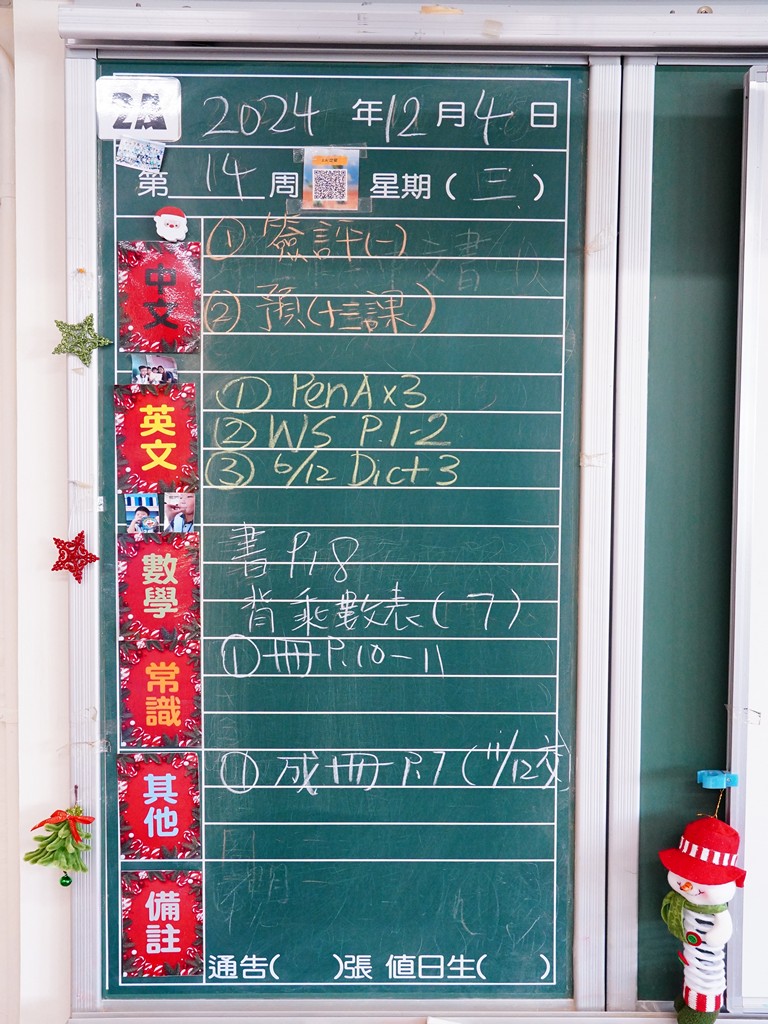 2A
2024 年 12 月 4 日
第 14 周 星期 ( 三 )
中文
① 簽評(一)
② 預(十三課)
英文
① PenA x3
② WS P.1-2
③ 6/12 Dict 3
數學
書 P.18
背乘數表 ( 7 )
常識
① 冊 P.10-11
其他
① 成冊 P.7 ( 11/12交
備註
通告( )張 值日生( )